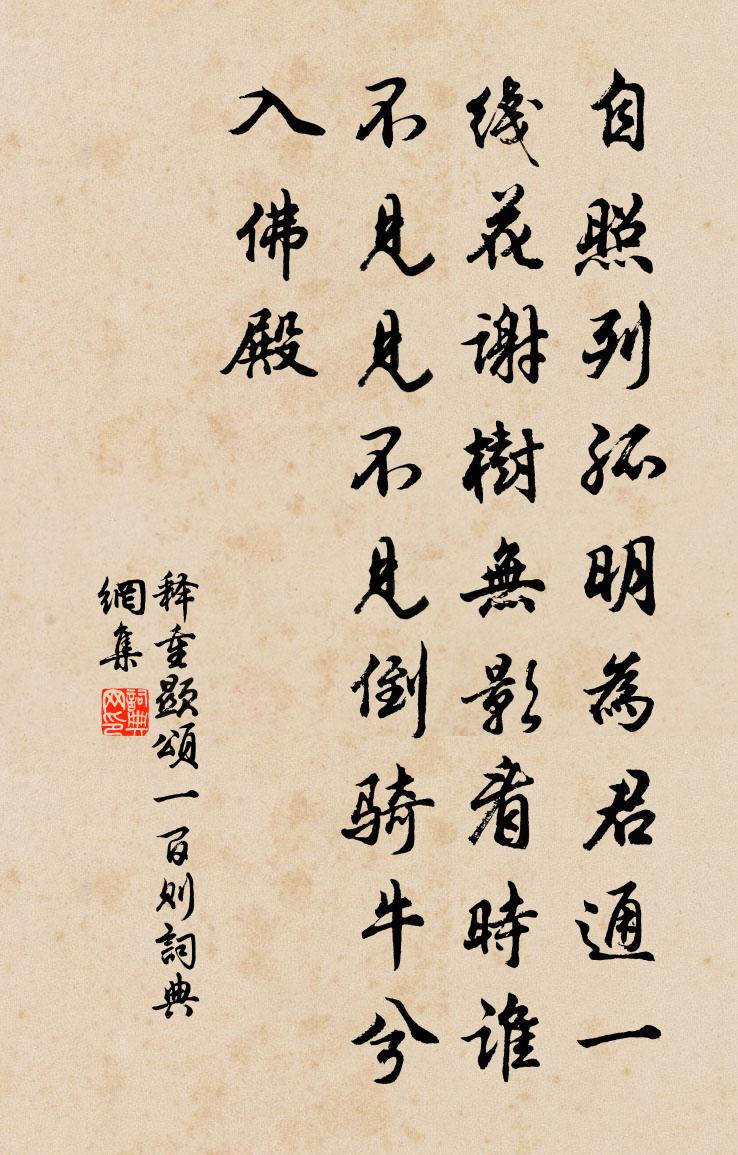 自照列孤明為君通一
线花謝樹無影看時誰
不見見不見倒騎牛兮
入佛殿
释重顯頌一百则詞典
網集
詞典网印